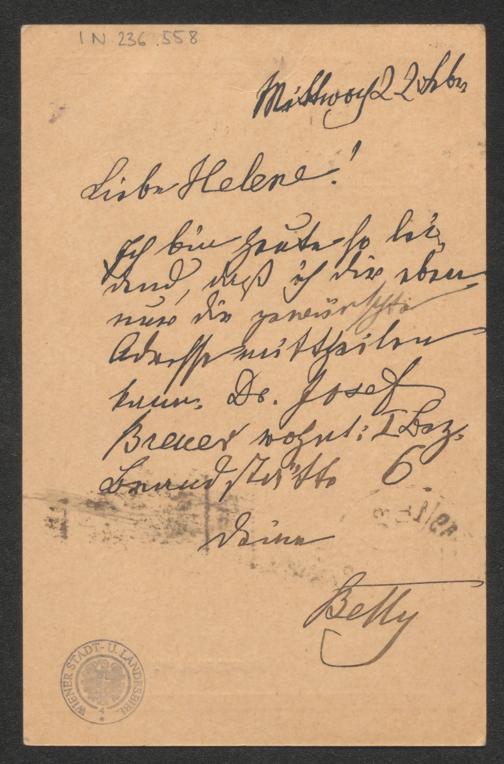 IN 236.558
Mittwoch 22 Febr
Liebe Helene!
Ich bin heute so lei-
dend, daß ich dir eben
nur die gewünschte
Adresse mittheilen
kann. Dr. Josef
Breuer wohnt: I Bez.
Brandstätte 6
Deine
Betty
WIENER STADT- U. LANDESBIBL.